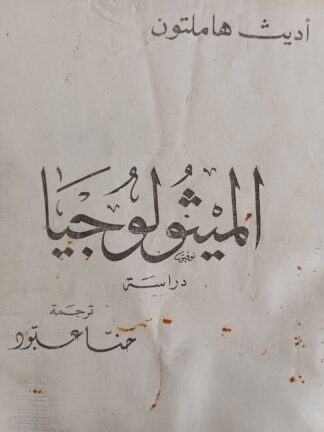 أديث هاملتون
الميثولوجيا
توفيق
دراسة
ترجمة
حنّا عبّود